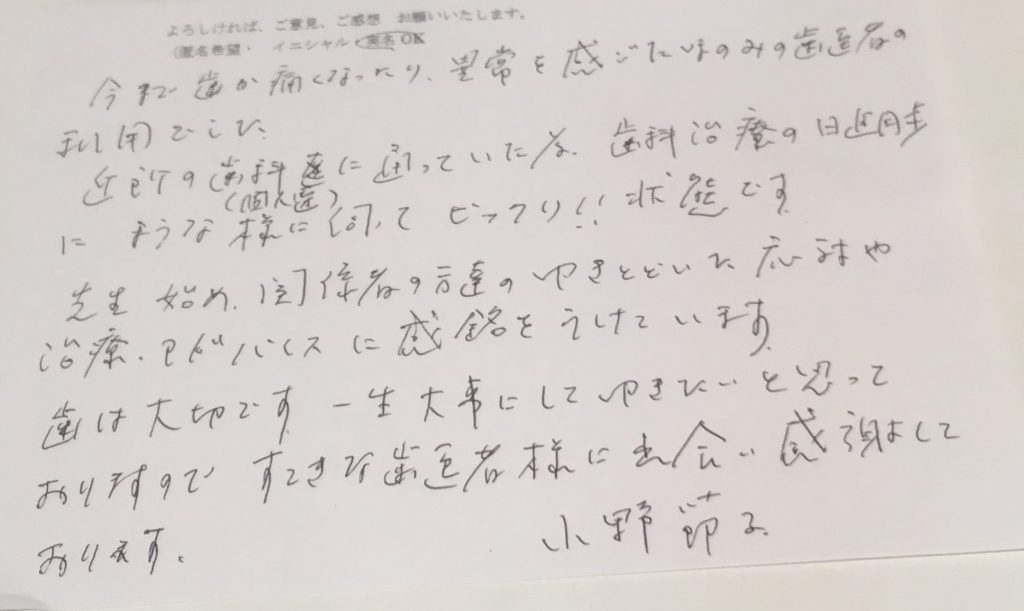 よろしければ、ご意見、ご感想 お願いいたします。
(匿名希望・ イニシャル 実名OK
今まで歯が痛くなったり、異常を感じた時のみの歯医者の
利用でした。
近所の歯科医に通っていたが、歯科治療の日進月歩
(個人医)
に 様に伺って ビックリ!! 状態です
先生 始め、関係者の方達のゆきとどいた応対や
治療・アドバイスに感銘をうけています
歯は大切です 一生大事にしてゆきたいと思って
おりますので すてきな歯医者様に出会い感謝して
おります。
小野 節子